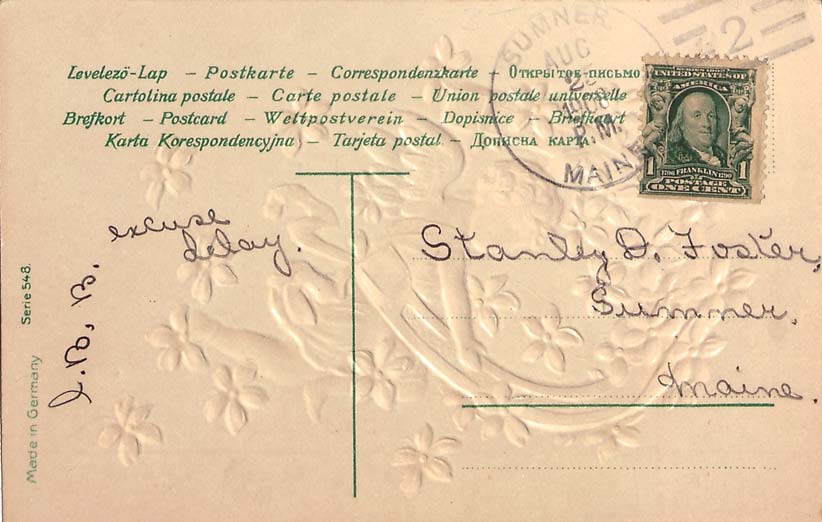 Levelező-Lap – Postkarte – Correspondenzkarte – Открытое-письмо
Cartolina postale – Carte postale – Union postale universelle
Brefkort – Postcard – Weltpostverein – Dopisnice – Briefkaart
Karta Korespondencyjna – Tarjeta postal – Дописна карта.
SUMNER
AUG
P.M.
MAINE
2
SERIES 1902
UNITED STATES OF
AMERICA
1 1
1706 FRANKLIN 1790
POSTAGE
ONE CENT
excuse
delay.
Stanley D. Foster,
Sumner.
Maine.
Serie 548.
Made in Germany